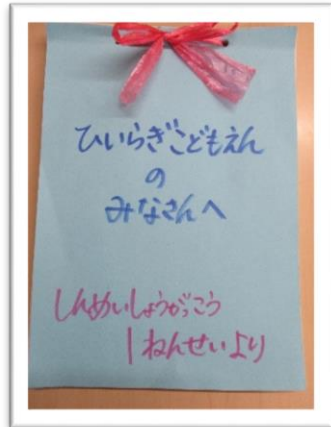 ひいらぎこどもえん
の
みなさんへ
しんめいしょうがっこう
1ねんせいより